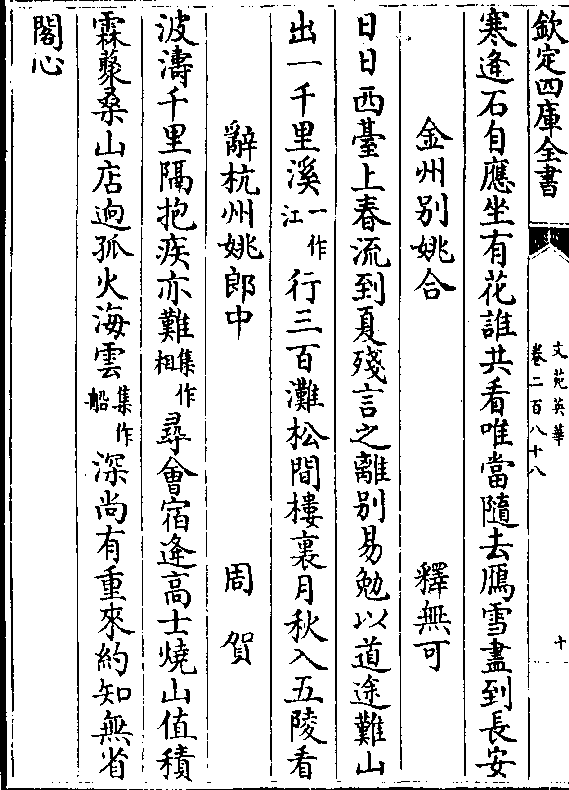 欽定四庫全書
文苑英華
卷二百八十八
十
寒逢石自應坐有花誰共看唯當隨去鴈雪盡到長安
金州别姚合 釋無可
日日西臺上春流到夏殘言之離别易勉以道途難山
出一千里溪一作江行三百灘松間樓裏月秋入五陵看
辭杭州姚郎中 周賀
波濤千里隔抱疾亦難集作相尋會宿逢高士燒山值積
霖聚桑山店逈孤火海雲集作船深尚有重來約知無省
閣心